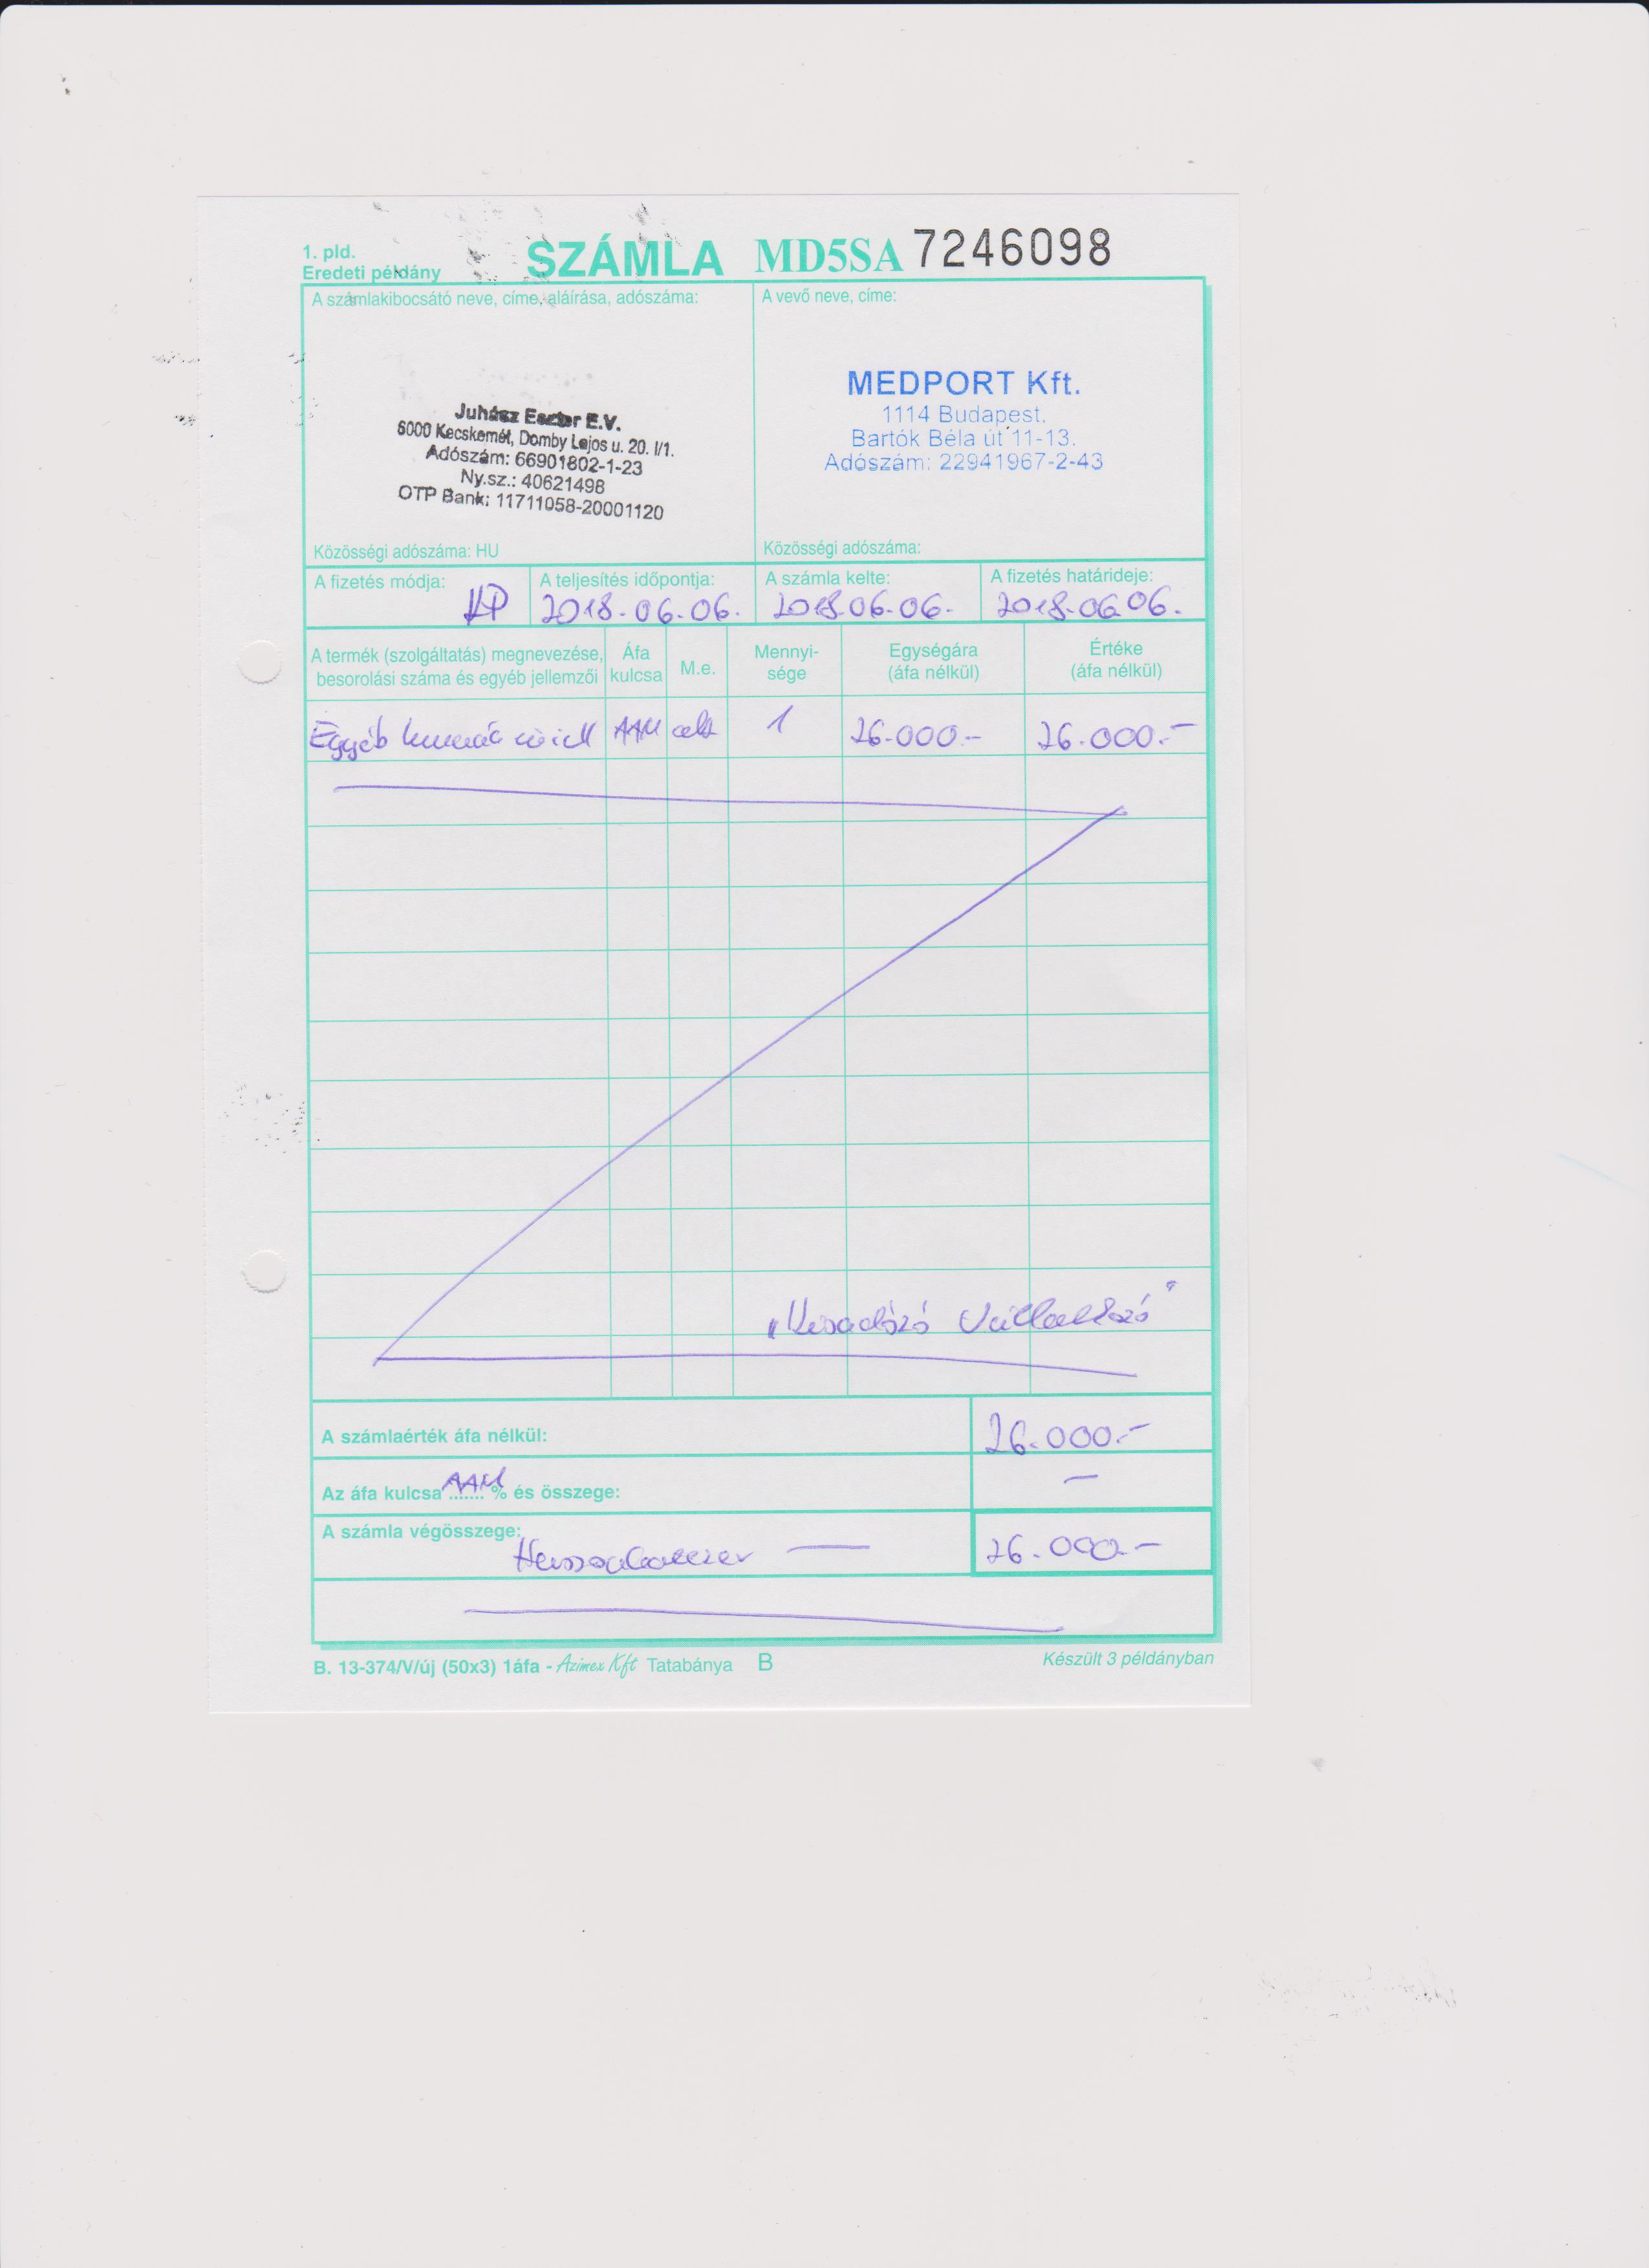 1. pld.
Eredeti példány
SZÁMLA MD5SA 7246098
A számlakibocsátó neve, címe, aláírása, adószáma:
Juhász Eszter E.V.
6000 Kecskemét, Domby Lajos u. 20. I/1.
Adószám: 66901802-1-23
Ny.sz.: 40621498
OTP Bank: 11711058-20001120
Közösségi adószáma: HU
A vevő neve, címe:
MEDPORT Kft.
1114 Budapest.
Bartók Béla út 11-13.
Adószám: 22941967-2-43
Közösségi adószáma:
A fizetés módja:
KP
A teljesítés időpontja:
2018.06.06.
A számla kelte:
2018.06.06.
A fizetés határideje:
2018.06.06.
A termék (szolgáltatás) megnevezése,
besorolási száma és egyéb jellemzői
Áfa
kulcsa
M.e.
Mennyi-
sége
Egységára
(áfa nélkül)
Értéke
(áfa nélkül)
Egyéb AAM 1 26.000.- 26.000.-
„Kisadózó Vállalkozó"
A számlaérték áfa nélkül: 26.000.-
Az áfa kulcsa AAM % és összege: —
A számla végösszege: 26.000.-
Huszonhatezer —
B. 13-374/V/új (50x3) 1áfa - Azimex Kft Tatabánya B
Készült 3 példányban